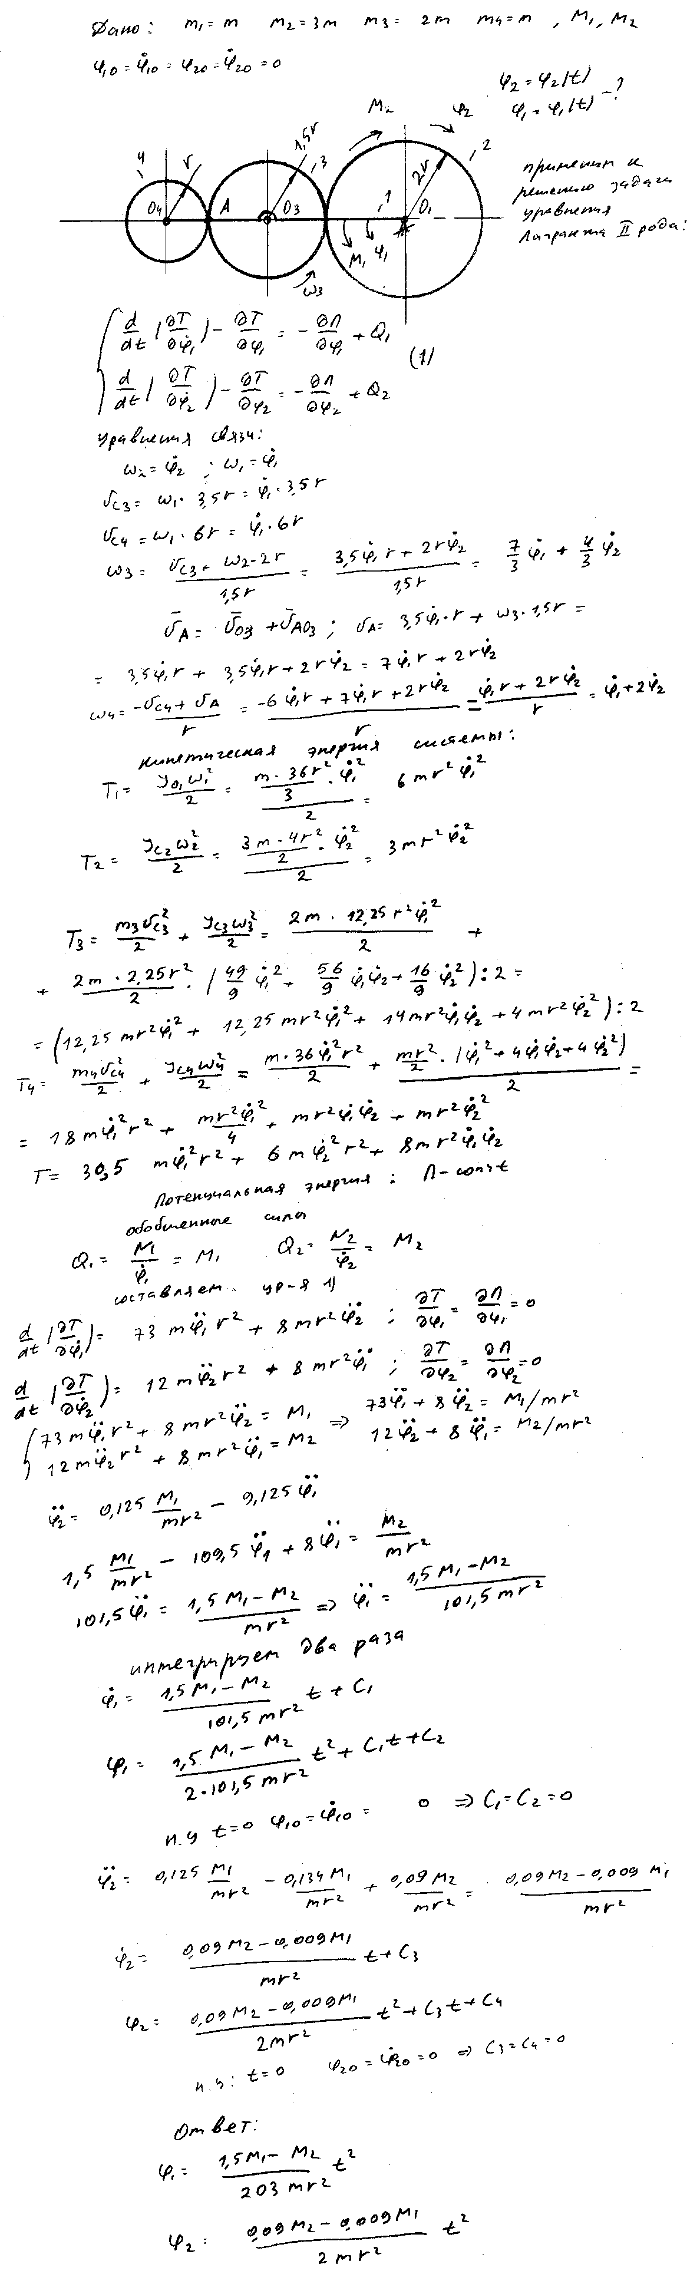 Дано: m₁ = m m₂ = 3m m₃ = 2m m₄ = m , M₁, M₂
φ₁₀ = φ̇₁₀ = φ₂₀ = φ̇₂₀ = 0
φ₂ = φ₂(t)
φ₁ = φ₁(t) - ?
M₂ φ₂
4 r 1,5r 3 2r 2
O₄ A O₃ 1 O₁
M₁ φ₁
ω₃
применим к
решению задачи
уравнения
Лагранжа II рода:
d/dt (∂T/∂φ̇₁) - ∂T/∂φ₁ = - ∂П/∂φ₁ + Q₁
(1)
d/dt (∂T/∂φ̇₂) - ∂T/∂φ₂ = - ∂П/∂φ₂ + Q₂
уравнения связи:
ω₂ = φ̇₂ ; ω₁ = φ̇₁
v_C3 = ω₁ · 3,5r = φ̇₁ · 3,5r
v_C4 = ω₁ · 6r = φ̇₁ · 6r
ω₃ = (v_C3 + ω₂ · 2r)/1,5r = (3,5φ̇₁r + 2rφ̇₂)/1,5r = 7/3 φ̇₁ + 4/3 φ̇₂
v̄_A = v̄_O3 + v̄_AO3 ; v_A = 3,5φ̇₁ · r + ω₃ · 1,5r =
= 3,5φ̇₁r + 3,5φ̇₁r + 2rφ̇₂ = 7φ̇₁r + 2rφ̇₂
ω₄ = (-v_C4 + v_A)/r = (-6φ̇₁r + 7φ̇₁r + 2rφ̇₂)/r = (φ̇₁r + 2rφ̇₂)/r = φ̇₁ + 2φ̇₂
кинетическая энергия системы:
T₁ = J_O1 ω₁²/2 = (m · 36r²/3 · φ̇₁²)/2 = 6mr²φ̇₁²
T₂ = J_C2 ω₂²/2 = (3m · 4r²/2 · φ̇₂²)/2 = 3mr²φ̇₂²
T₃ = m₃v_C3²/2 + J_C3 ω₃²/2 = 2m · 12,25r²φ̇₁²/2 +
+ 2m · 2,25r²/2 · (49/9 φ̇₁² + 56/9 φ̇₁φ̇₂ + 16/9 φ̇₂²) : 2 =
= (12,25mr²φ̇₁² + 12,25mr²φ̇₁² + 14mr²φ̇₁φ̇₂ + 4mr²φ̇₂²) : 2
T₄ = m₄v_C4²/2 + J_C4 ω₄²/2 = m · 36φ̇₁²r²/2 + (mr²/2 · (φ̇₁² + 4φ̇₁φ̇₂ + 4φ̇₂²))/2 =
= 18mφ̇₁²r² + mr²φ̇₁²/4 + mr²φ̇₁φ̇₂ + mr²φ̇₂²
T = 36,5 mφ̇₁²r² + 6mφ̇₂²r² + 8mr²φ̇₁φ̇₂
Потенциальная энергия: П - const
обобщенные силы
Q₁ = N₁/φ̇₁ = M₁ Q₂ = N₂/φ̇₂ = M₂
составляем ур-я 1)
d/dt (∂T/∂φ̇₁) = 73mφ̈₁r² + 8mr²φ̈₂ ; ∂T/∂φ₁ = ∂П/∂φ₁ = 0
d/dt (∂T/∂φ̇₂) = 12mφ̈₂r² + 8mr²φ̈₁ ; ∂T/∂φ₂ = ∂П/∂φ₂ = 0
73mφ̈₁r² + 8mr²φ̈₂ = M₁ ⇒ 73φ̈₁ + 8φ̈₂ = M₁/mr²
12mφ̈₂r² + 8mr²φ̈₁ = M₂ 12φ̈₂ + 8φ̈₁ = M₂/mr²
φ̈₂ = 0,125 M₁/mr² - 9,125φ̈₁
1,5 M₁/mr² - 109,5φ̈₁ + 8φ̈₁ = M₂/mr²
101,5φ̈₁ = (1,5M₁ - M₂)/mr² ⇒ φ̈₁ = (1,5M₁ - M₂)/101,5mr²
интегрируем два раза
φ̇₁ = (1,5M₁ - M₂)/101,5mr² t + C₁
φ₁ = (1,5M₁ - M₂)/2·101,5mr² t² + C₁t + C₂
н.у t=0 φ₁₀ = φ̇₁₀ = 0 ⇒ C₁ = C₂ = 0
φ̈₂ = 0,125 M₁/mr² - 0,134M₁/mr² + 0,09M₂/mr² = (0,09M₂ - 0,009M₁)/mr²
φ̇₂ = (0,09M₂ - 0,009M₁)/mr² t + C₃
φ₂ = (0,09M₂ - 0,009M₁)/2mr² t² + C₃t + C₄
н.у: t=0 φ₂₀ = φ̇₂₀ = 0 ⇒ C₃ = C₄ = 0
Ответ:
φ₁ = (1,5M₁ - M₂)/203mr² t²
φ₂ = (0,09M₂ - 0,009M₁)/2mr² t²